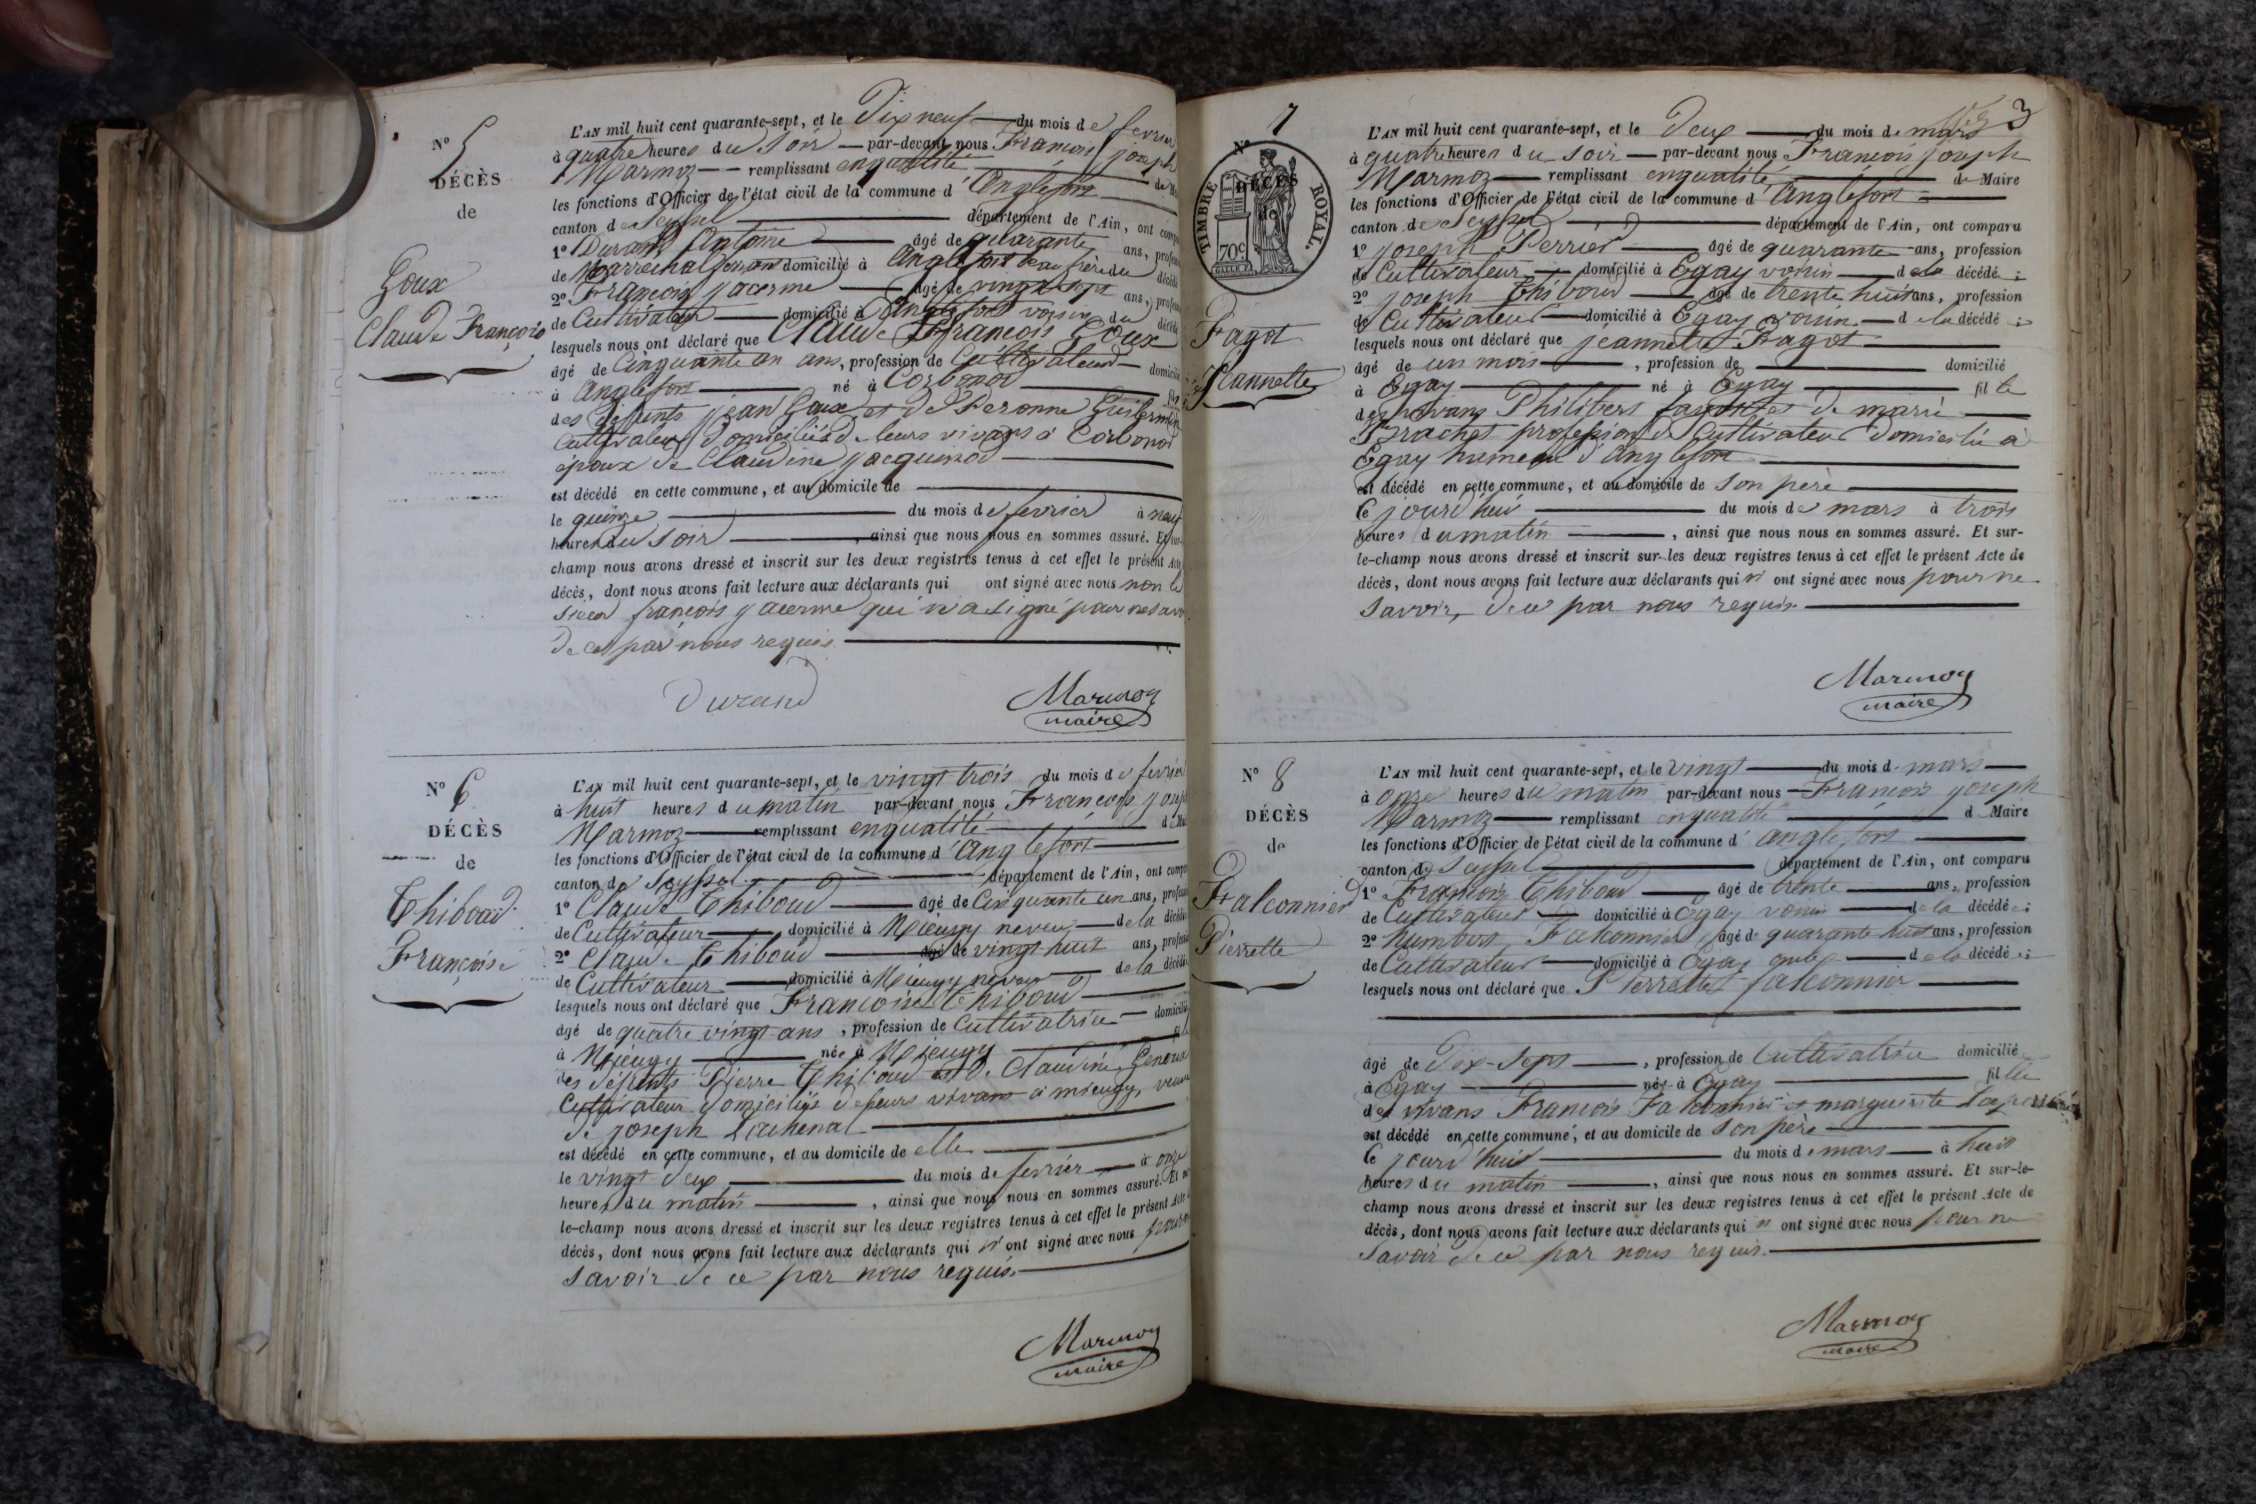 N° 5
DÉCÈS
de
Goux
Claude François
L'AN mil huit cent quarante-sept, et le Dix neuf du mois de fevrier
à quatre heures du soir par-devant nous François joseph
Marmoz remplissant enqualité de
les fonctions d'Officier de l'état civil de la commune d'Anglefort
canton de Seyssel département de l'Ain, ont
1° Durand Antoine âgé de quarante ans,
de Marrechal domicilié à Anglefort beau frère du décédé
2° François jacerme âgé de vingt sept ans,
de Cultivateur domicilié à Anglefort voisin du
lesquels nous ont déclaré que Claude François Goux
âgé de Cinquante un ans, profession de Cultivateur
à Anglefort né à Corbonod fils
des deffunts jean Goux et de Peronne
Cultivateur domiciliés de leurs vivans à Corbonod
époux de Claudine jacquinod
est décédé en cette commune, et au domicile de
le quinze du mois de fevrier à neuf
heures du soir, ainsi que nous nous en sommes assuré. Et sur-
champ nous avons dressé et inscrit sur les deux registres tenus à cet effet le présent Acte
décès, dont nous avons fait lecture aux déclarants qui ont signé avec nous non le
sieur françois jacerme qui n'a signé pour ne savoir
de ce par nous requis
Durand
Marmoz
maire
N° 6
DÉCÈS
de
Thiboud
Françoise
L'AN mil huit cent quarante-sept, et le vingt trois du mois de fevrier
à huit heures du matin par-devant nous François
Marmoz remplissant enqualité
les fonctions d'Officier de l'état civil de la commune d'Anglefort
canton de Seyssel département de l'Ain, ont
1° Claude Thiboud âgé de Cinquante un ans,
de Cultivateur domicilié à Mieugy neveu de la
2° Claude Thiboud âgé de vingt huit ans,
de Cultivateur domicilié à Mieugy neveu de la
lesquels nous ont déclaré que Françoise Thiboud
âgé de quatre vingt ans, profession de Cultivatrice
à Mieugy née à Mieugy
des défunts Pierre Thiboud et de Claudine
Cultivateur domiciliés de leurs vivans à mieugy, veuve
de joseph Lachenal
est décédé en cette commune, et au domicile de elle
le vingt deux du mois de fevrier à onze
heures du matin, ainsi que nous nous en sommes assuré. Et
le-champ nous avons dressé et inscrit sur les deux registres tenus à cet effet le présent Acte
décès, dont nous avons fait lecture aux déclarants qui n'ont signé avec nous
savoir de ce par nous requis.
Marmoz
maire
3
7
N°
DÉCÈS
de
TIMBRE ROYAL.
70c.
Fagot
Jeannette
L'AN mil huit cent quarante-sept, et le Deux du mois de mars
à quatre heures du soir par-devant nous François joseph
Marmoz remplissant enqualité de Maire
les fonctions d'Officier de l'état civil de la commune d'Anglefort
canton de Seyssel département de l'Ain, ont comparu
1° joseph Perrier âgé de quarante ans, profession
de Cultivateur domicilié à Egay voisin de la décédé ;
2° joseph Thiboud âgé de trente huit ans, profession
de Cultivateur domicilié à Egay voisin de la décédé ;
lesquels nous ont déclaré que jéannette Fagot
âgé de un mois, profession de domicilié
à Egay né à Egay fille
des vivans Philibert fagot et de marie
Brachet profession de Cultivateur domicilié à
Egay hameau d'Anglefort
est décédé en cette commune, et au domicile de son père
le jourd'hui du mois de mars à trois
heures du matin, ainsi que nous nous en sommes assuré. Et sur-
le-champ nous avons dressé et inscrit sur les deux registres tenus à cet effet le présent Acte de
décès, dont nous avons fait lecture aux déclarants qui n'ont signé avec nous pour ne
savoir, de ce par nous requis
Marmoz
maire
N° 8
DÉCÈS
de
Falconnier
Pierrette
L'AN mil huit cent quarante-sept, et le vingt du mois de mars
à onze heures du matin par-devant nous François joseph
Marmoz remplissant enqualité de Maire
les fonctions d'Officier de l'état civil de la commune d'anglefort
canton de Seyssel département de l'Ain, ont comparu
1° François Thiboud âgé de trente ans, profession
de Cultivateur domicilié à Egay voisin de la décédé ;
2° humbert Falconnier, âgé de quarante huit ans, profession
de Cultivateur domicilié à Egay oncle de la décédé ;
lesquels nous ont déclaré que Pierrette falconnier
âgé de Dix-Sept, profession de Cultivatrice domicilié
à Egay née à Egay fille
des vivans François Falconnier et marguerite
est décédé en cette commune, et au domicile de son père
le jourd'huit du mois de mars à huit
heures du matin, ainsi que nous nous en sommes assuré. Et sur-le-
champ nous avons dressé et inscrit sur les deux registres tenus à cet effet le présent Acte de
décès, dont nous avons fait lecture aux déclarants qui n'ont signé avec nous pour ne
savoir de ce par nous requis.
Marmoz
maire